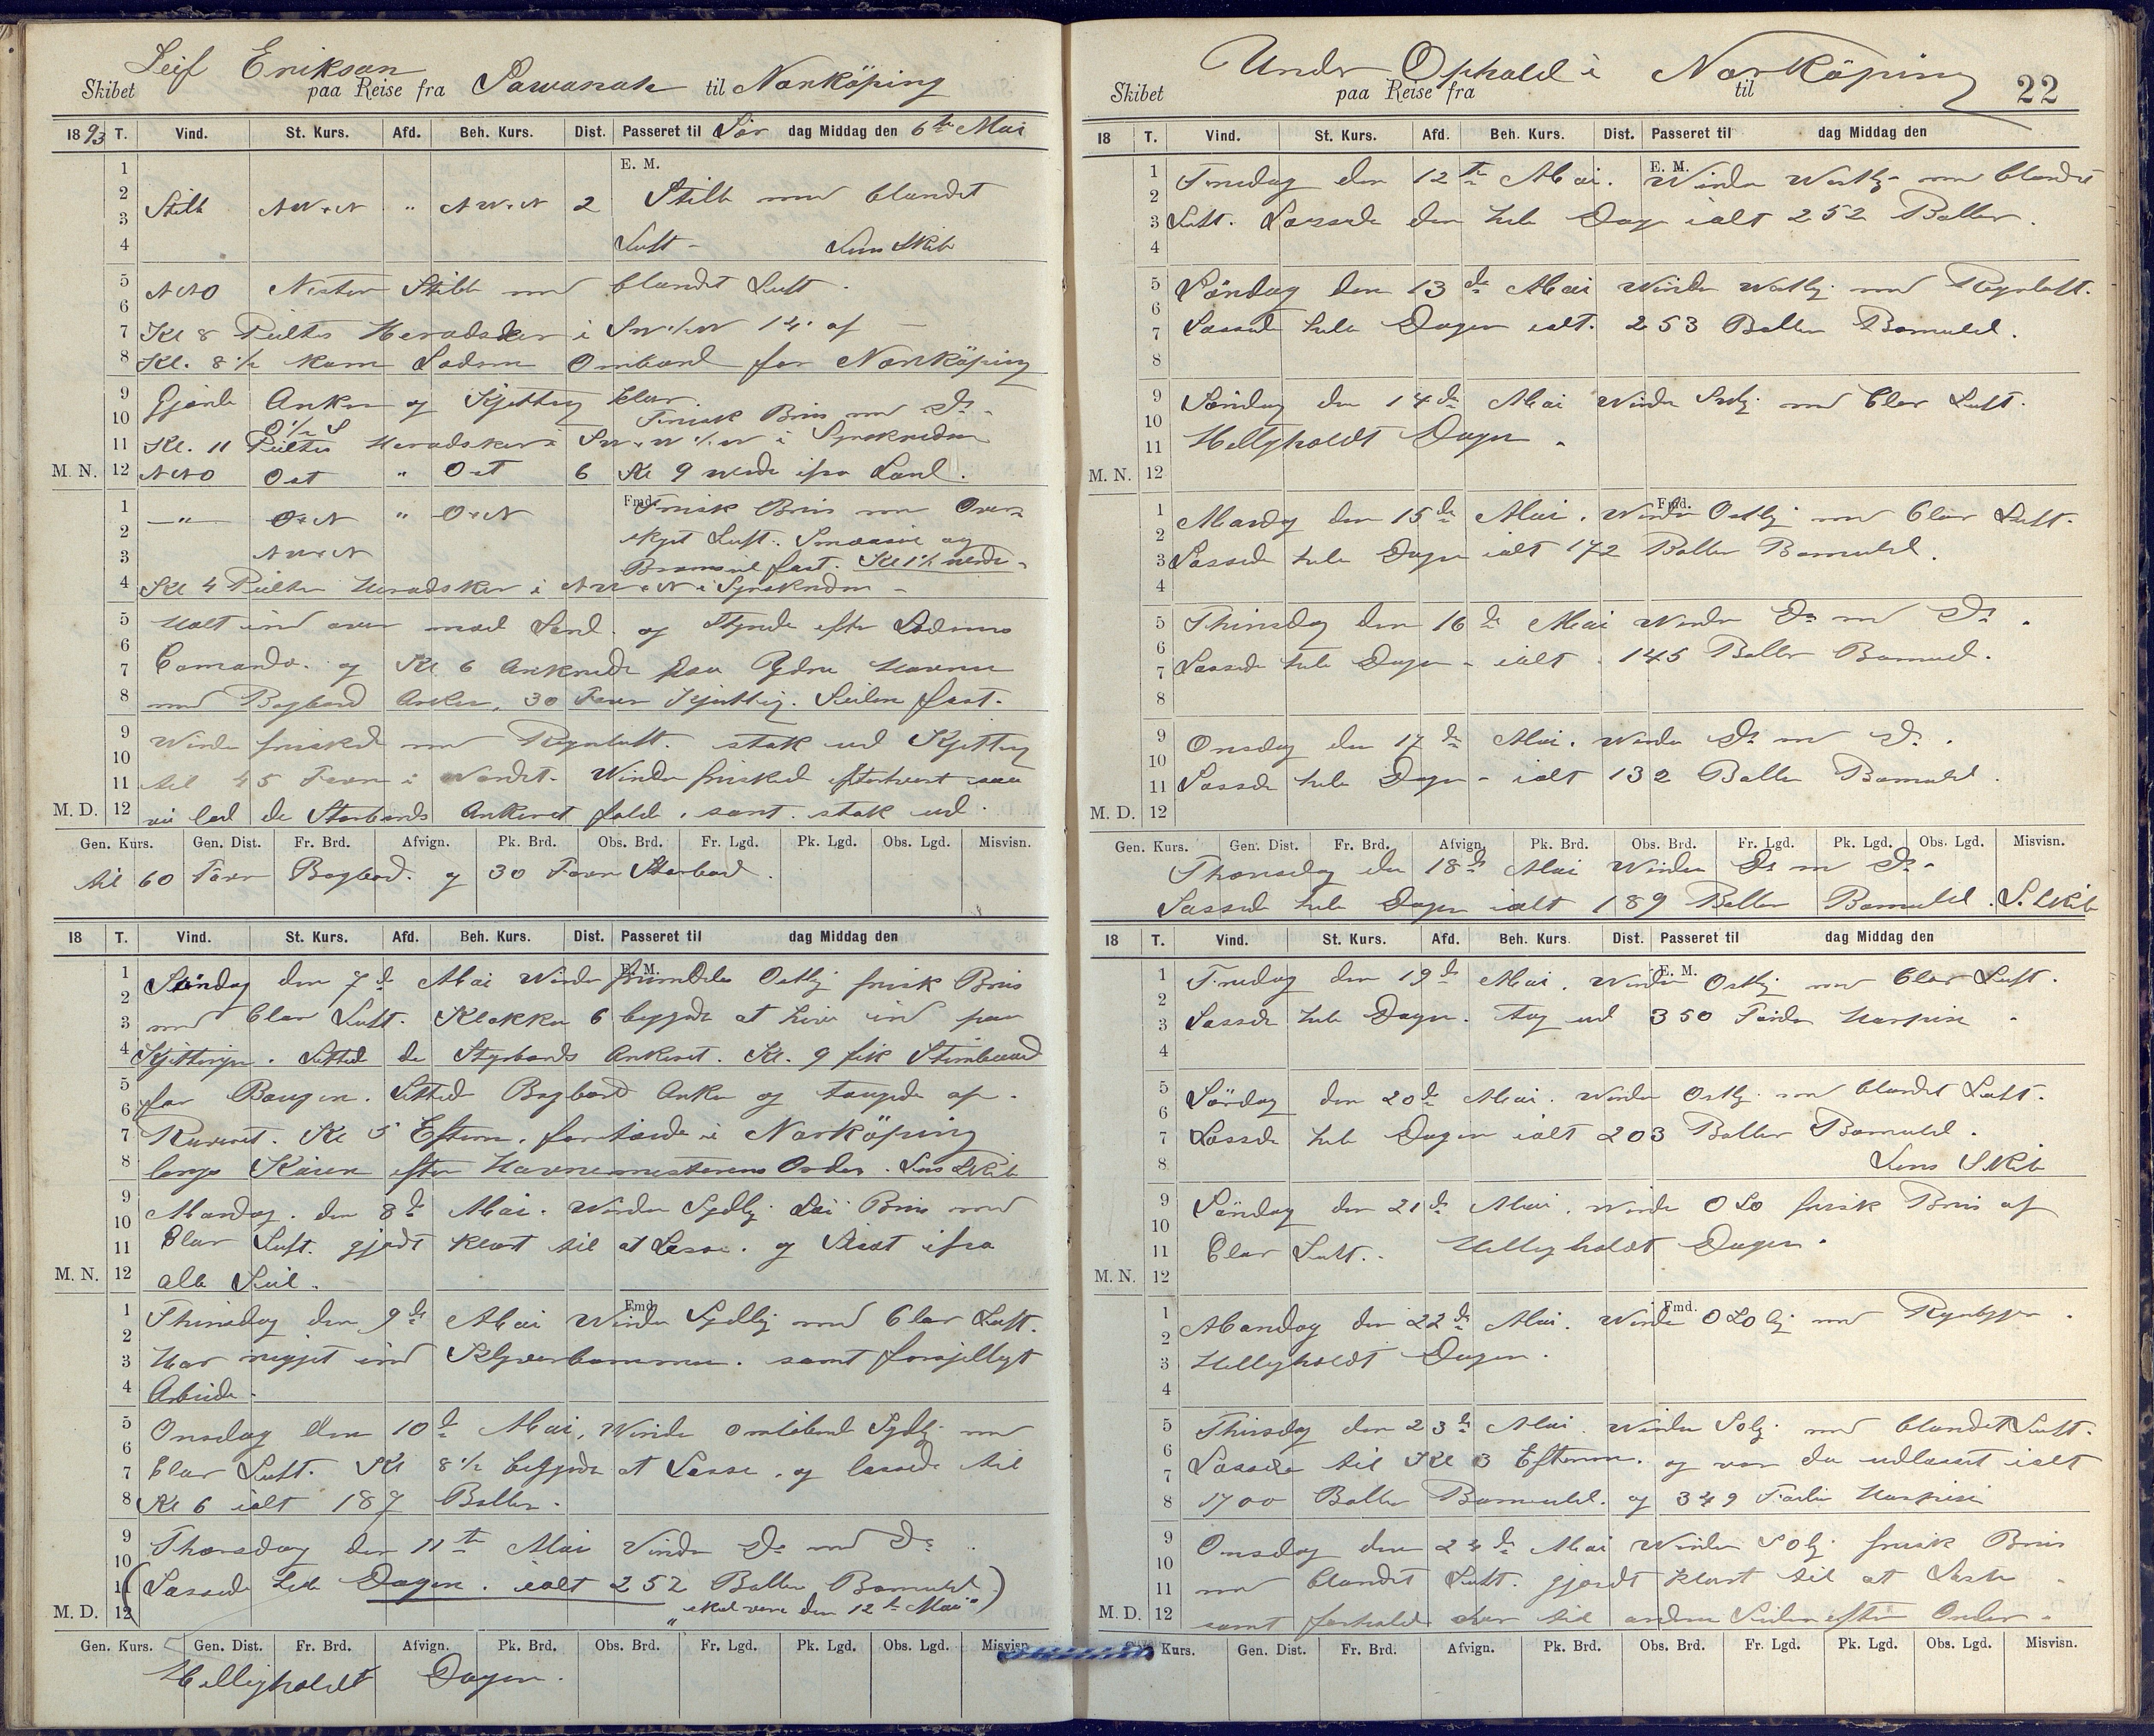 Leif Erikson
Skibet paa Reise fra Sawanah til Norköping
1893 T. Vind. St. Kurs. Afd. Beh. Kurs. Dist. Passeret til Lør dag Middag den 6te Mai
1 E. M.
2 Stille NW.N " NW.N 2 Stille med blandet
3
4 Luft - Lens Skib
5 NNO Nesten Stille med blandet Luft.
6
7 Kl 8 Peiltes Heradsker i
8 Kl. 8 1/2 kom Lodsen Ombord for Norköping
9 Gjorde Anker og Kjetting klar.
10 Frisk Bris med Do.
11 Kl. 11 Peiltes Heradsker i Synskredsen
M. N. 12 NNO Ost " Ost 6 Kl 9 vendte ifra Land.
1 Fmd. Frisk Bris med Over-
— " — O.N " O.N
2 skyet Luft. Smaaseil og
3 NW.N Bramseil fast. Kl 1 1/2 vendte
4 Kl 4 Peiltes Heradsker i NW.N i Synskredsen
5 Holt ind over mod Land og Styrede efter Lodsens
6
7 Comando. og Kl. 6 Ankrede paa Ydre Havnen
8 med Bagbord Anker, 30 Favn Kjetting. Seilene fast.
9 Vinden friskede med Regnluft. stak ud Kjetting
10
11 til 45 Favn i Vandet. Vinden friskede efterhvert saa
M. D. 12 vi lod de Storbords Ankeret falde, samt stak ud
Gen. Kurs. Gen. Dist. Fr. Brd. Afvign. Pk. Brd. Obs. Brd. Fr. Lgd. Pk. Lgd. Obs. Lgd. Misvisn.
til 60 Favn Bagbord. og 30 Favn Storbord.
18 T. Vind. St. Kurs. Afd. Beh. Kurs. Dist. Passeret til dag Middag den
1 E. M.
Søndag den 7de Mai Vinden fremdeles Ostlig frisk Bris
2
3 med Clar Luft. Klokken 6 begynte at hive ind paa
4 Kjettingen. Lettede de Styrbords Ankeret. Kl. 9 fik Stimbaad
5
6 for Baugen. Lettede Bagbord Anker og taugede op
7 Reveret. Kl 5 Efterm. fortøiede i Norköping
8 langs Kaien efter Havnemesterens Order. Lens Skib
9
10 Mandag. den 8de Mai. Vinden Sydlig Lai Bris med
11 Clar Luft. gjordt klart til at Losse. og Slaat ifra
M. N. 12 alle Seil.
1 Fmd
Thirsdag den 9de Mai Vinden Sydlig med Clar Luft.
2
3 Har rigget ind Klyverbommen. samt forsjelligt
4 Arbeide.
5 Onsdag den 10de Mai, Vinden omløbende Sydlig med
6
7 Clar Luft. Kl 8 1/2 begynte at Losse. og lossede til
8 Kl 6 ialt 187 Baller.
9
10 Thorsdag den 11te Mai Vinden Do med Do
11 (Lossede hele Dagen. ialt 252 Baller Bomuld)
M. D. 12 "skal være den 12te Mai"
Gen. Kurs. Gen. Dist. Fr. Brd. Afvign. Pk. Brd. Obs. Brd. Fr. Lgd. Pk. Lgd. Obs. Lgd. Misvisn.
Helligholdt Dagen.
Under Ophold i Norköping 22
Skibet paa Reise fra til
18 T. Vind. St. Kurs. Afd. Beh. Kurs. Dist. Passeret til dag Middag den
1 E. M.
Fredag den 12te Mai. Vinden Westlig med blandet
2
3 Luft. Lossede den hele Dagen ialt 252 Baller.
4
5 Lördag den 13de Mai Vinden Westlig med Regnluft.
6
7 Lossede hele Dagen ialt. 253 Baller Bomuld.
8
9 Søndag den 14de Mai Vinden Sydlig med Clar Luft.
10
11 Helligholdt Dagen.
M. N. 12
1 Fmd.
Mandag den 15de Mai. Vinden Ostlig med Clar Luft.
2
3 Lossede hele Dagen ialt 172 Baller Bomuld.
4
5 Thirsdag den 16de Mai Vinden Do med Do.
6
7 Lossede hele Dagen - ialt 145 Baller Bomuld.
8
9 Onsdag den 17de Mai. Vinden Do med Do.
10
11 Lossede hele Dagen - ialt 132 Baller Bomuld.
M. D. 12
Gen. Kurs. Gen. Dist. Fr. Brd. Afvign. Pk. Brd. Obs. Brd. Fr. Lgd. Pk. Lgd. Obs. Lgd. Misvisn.
Thorsdag den 18de Mai Vinden Do med Do.
Lossede hele Dagen ialt 189 Baller Bomuld. L. Skib
18 T. Vind. St. Kurs. Afd. Beh. Kurs. Dist. Passeret til dag Middag den
1 E. M.
Fredag den 19de Mai. Vinden Ostlig med Clar Luft.
2
3 Lossede hele Dagen. tog ud 350 Harpix
4
5 Lördag den 20de Mai. Vinden Ostlig med blandet Luft.
6
7 Lossede hele Dagen ialt 203 Baller Bomuld.
8 Lens Skib
9 Söndag den 21de Mai. Vinden OSO frisk Bris af
10
11 Clar Luft. Helligholdt Dagen.
M. N. 12
1 Fmd.
Mandag den 22de Mai. Vinden OSOlig med Regnbyger.
2
3 Helligholdt Dagen.
4
5 Thirsdag den 23de Mai Vinden SOlig med blandet Luft.
6
7 Lossede til Kl 3 Efterm. og var da udlosset ialt
8 1700 Baller Bomuld. og 349 Harpix
9
10 Onsdag den 24de Mai Vinden SOlig frisk Bris
11 med blandet Luft. gjordt klart til at Laste
M. D. 12 samt forhalede til andre Siden efter Order.
Kurs. Gen. Dist. Fr. Brd. Afvign. Pk. Brd. Obs. Brd. Fr. Lgd. Pk. Lgd. Obs. Lgd. Misvisn.